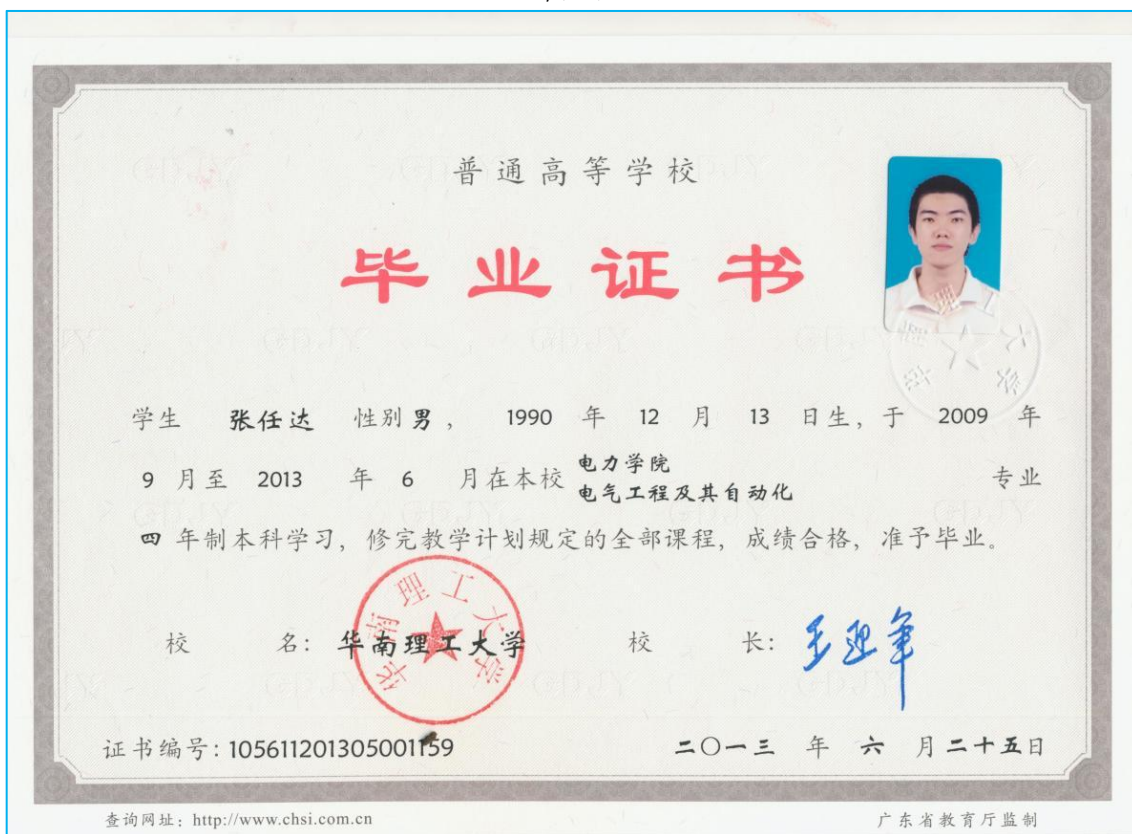 普通高等学校
毕业证书
学生 张任达 性别男， 1990 年 12 月 13 日生，于 2009 年
9 月至 2013 年 6 月在本校 电力学院
电气工程及其自动化 专业
四 年制本科学习，修完教学计划规定的全部课程，成绩合格，准予毕业。
华南理工大学
校 名：华南理工大学 校 长：王迎军
证书编号：105611201305001159 二〇一三 年 六 月二十五日
查询网址：http://www.chsi.com.cn 广东省教育厅监制